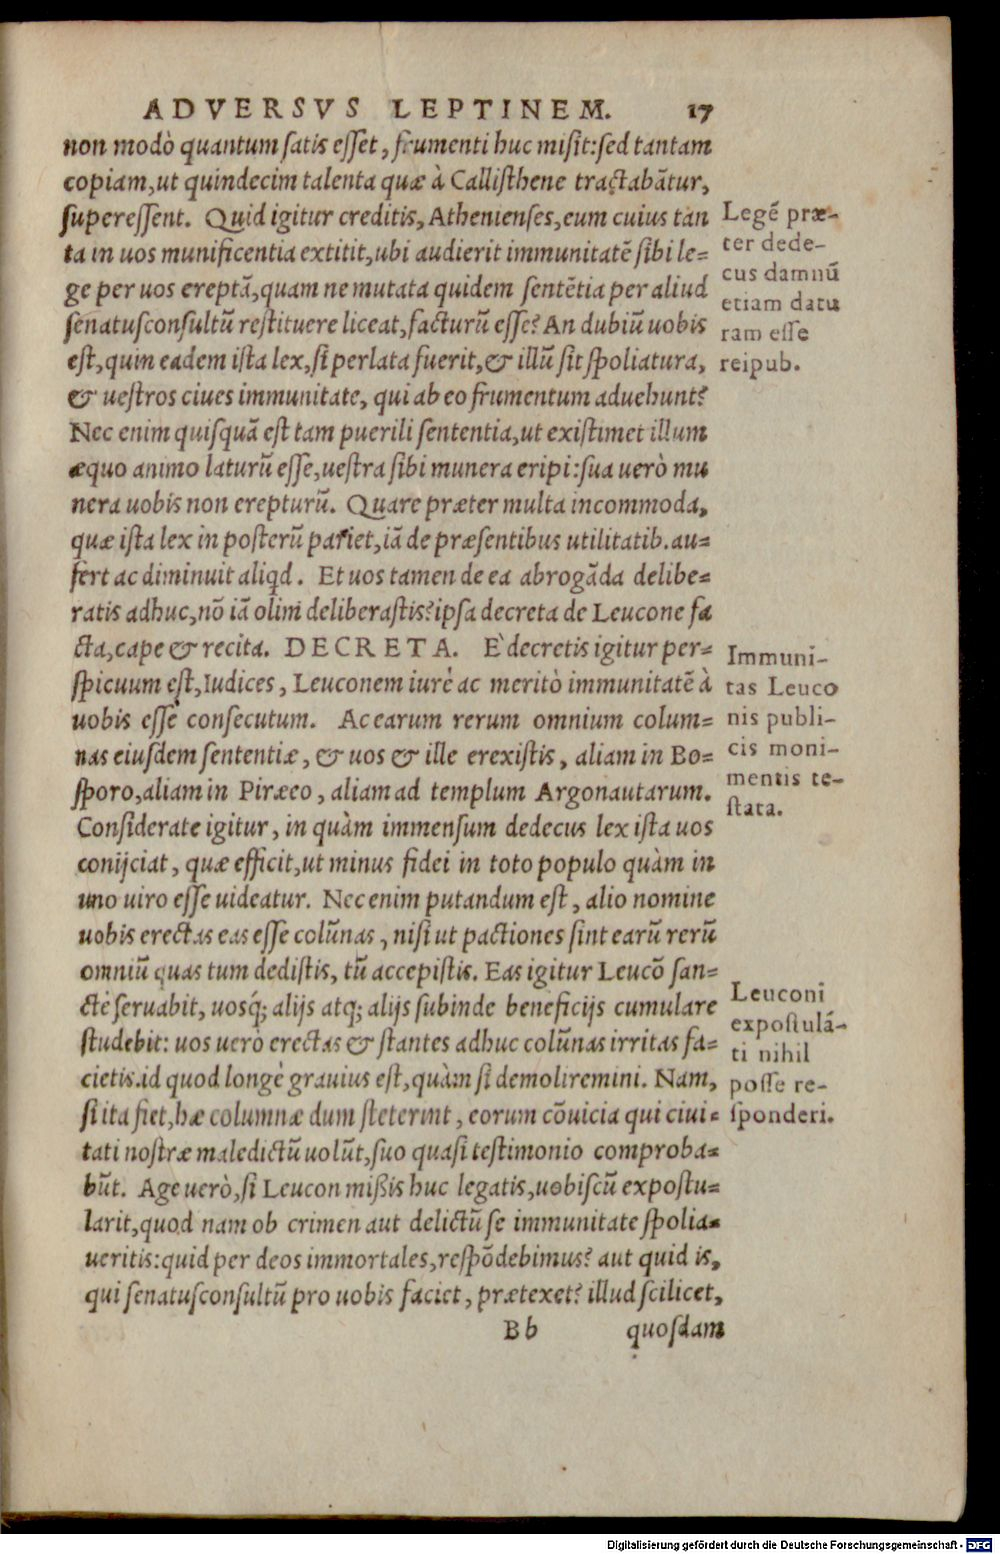 ADVERSVS LEPTINEM. 17
non modò quantum satis esset, frumenti huc misit: sed tantam
copiam, ut quindecim talenta quæ à Callisthene tractabãtur,
superessent. Quid igitur creditis, Athenienses, eum cuius tan
ta in uos munificentia extitit, ubi audierit immunitatẽ sibi le=
ge per uos ereptã, quam ne mutata quidem sentẽtia per aliud
senatusconsultũ restituere liceat, facturũ esse? An dubiũ uobis
est, quin eadem ista lex, si perlata fuerit, & illũ sit spoliatura,
& uestros ciues immunitate, qui ab eo frumentum aduehunt?
Nec enim quisquã est tam puerili sententia, ut existimet illum
æquo animo laturũ esse, uestra sibi munera eripi: sua uerò mu
nera uobis non erepturũ. Quare præter multa incommoda,
quæ ista lex in posterũ pariet, iã de præsentibus utilitatib. au=
fert ac diminuit aliqd. Et uos tamen de ea abrogãda delibe=
ratis adhuc, nõ iã olim deliberastis? ipsa decreta de Leucone fa
cta, cape & recita. DECRETA. È decretis igitur per=
spicuum est, Iudices, Leuconem iurè ac meritò immunitatẽ à
uobis esse consecutum. Ac earum rerum omnium colum=
nas eiusdem sententiæ, & uos & ille erexistis, aliam in Bo=
sporo, aliam in Piræeo, aliam ad templum Argonautarum.
Considerate igitur, in quàm immensum dedecus lex ista uos
conijciat, quæ efficit, ut minus fidei in toto populo quàm in
uno uiro esse uideatur. Nec enim putandum est, alio nomine
uobis erectas eas esse colũnas, nisi ut pactiones sint earũ rerũ
omniũ quas tum dedistis, tũ accepistis. Eas igitur Leucõ san=
ctè seruabit, uosq́; alijs atq; alijs subinde beneficijs cumulare
studebit: uos uerò erectas & stantes adhuc colũnas irritas fa=
cietis. id quod longè grauius est, quàm si demoliremini. Nam,
si ita fiet, hæ columnæ dum steterint, eorum cõuicia qui ciui=
tati nostræ maledictũ uolũt, suo quasi testimonio comproba=
bũt. Age uerò, si Leucon mißis huc legatis, uobiscũ expostu=
larit, quod nam ob crimen aut delictũ se immunitate spolia=
ueritis: quid per deos immortales, respõdebimus? aut quid is,
qui senatusconsultũ pro uobis faciet, prætexet? illud scilicet,
Bb quosdam
Legẽ præ-
ter dede-
cus damnũ
etiam datu
ram esse
reipub.
Immuni-
tas Leuco
nis publi-
cis moni-
mentis te-
stata.
Leuconi
expostulã-
ti nihil
posse re-
sponderi.
Digitalisierung gefördert durch die Deutsche Forschungsgemeinschaft - DFG